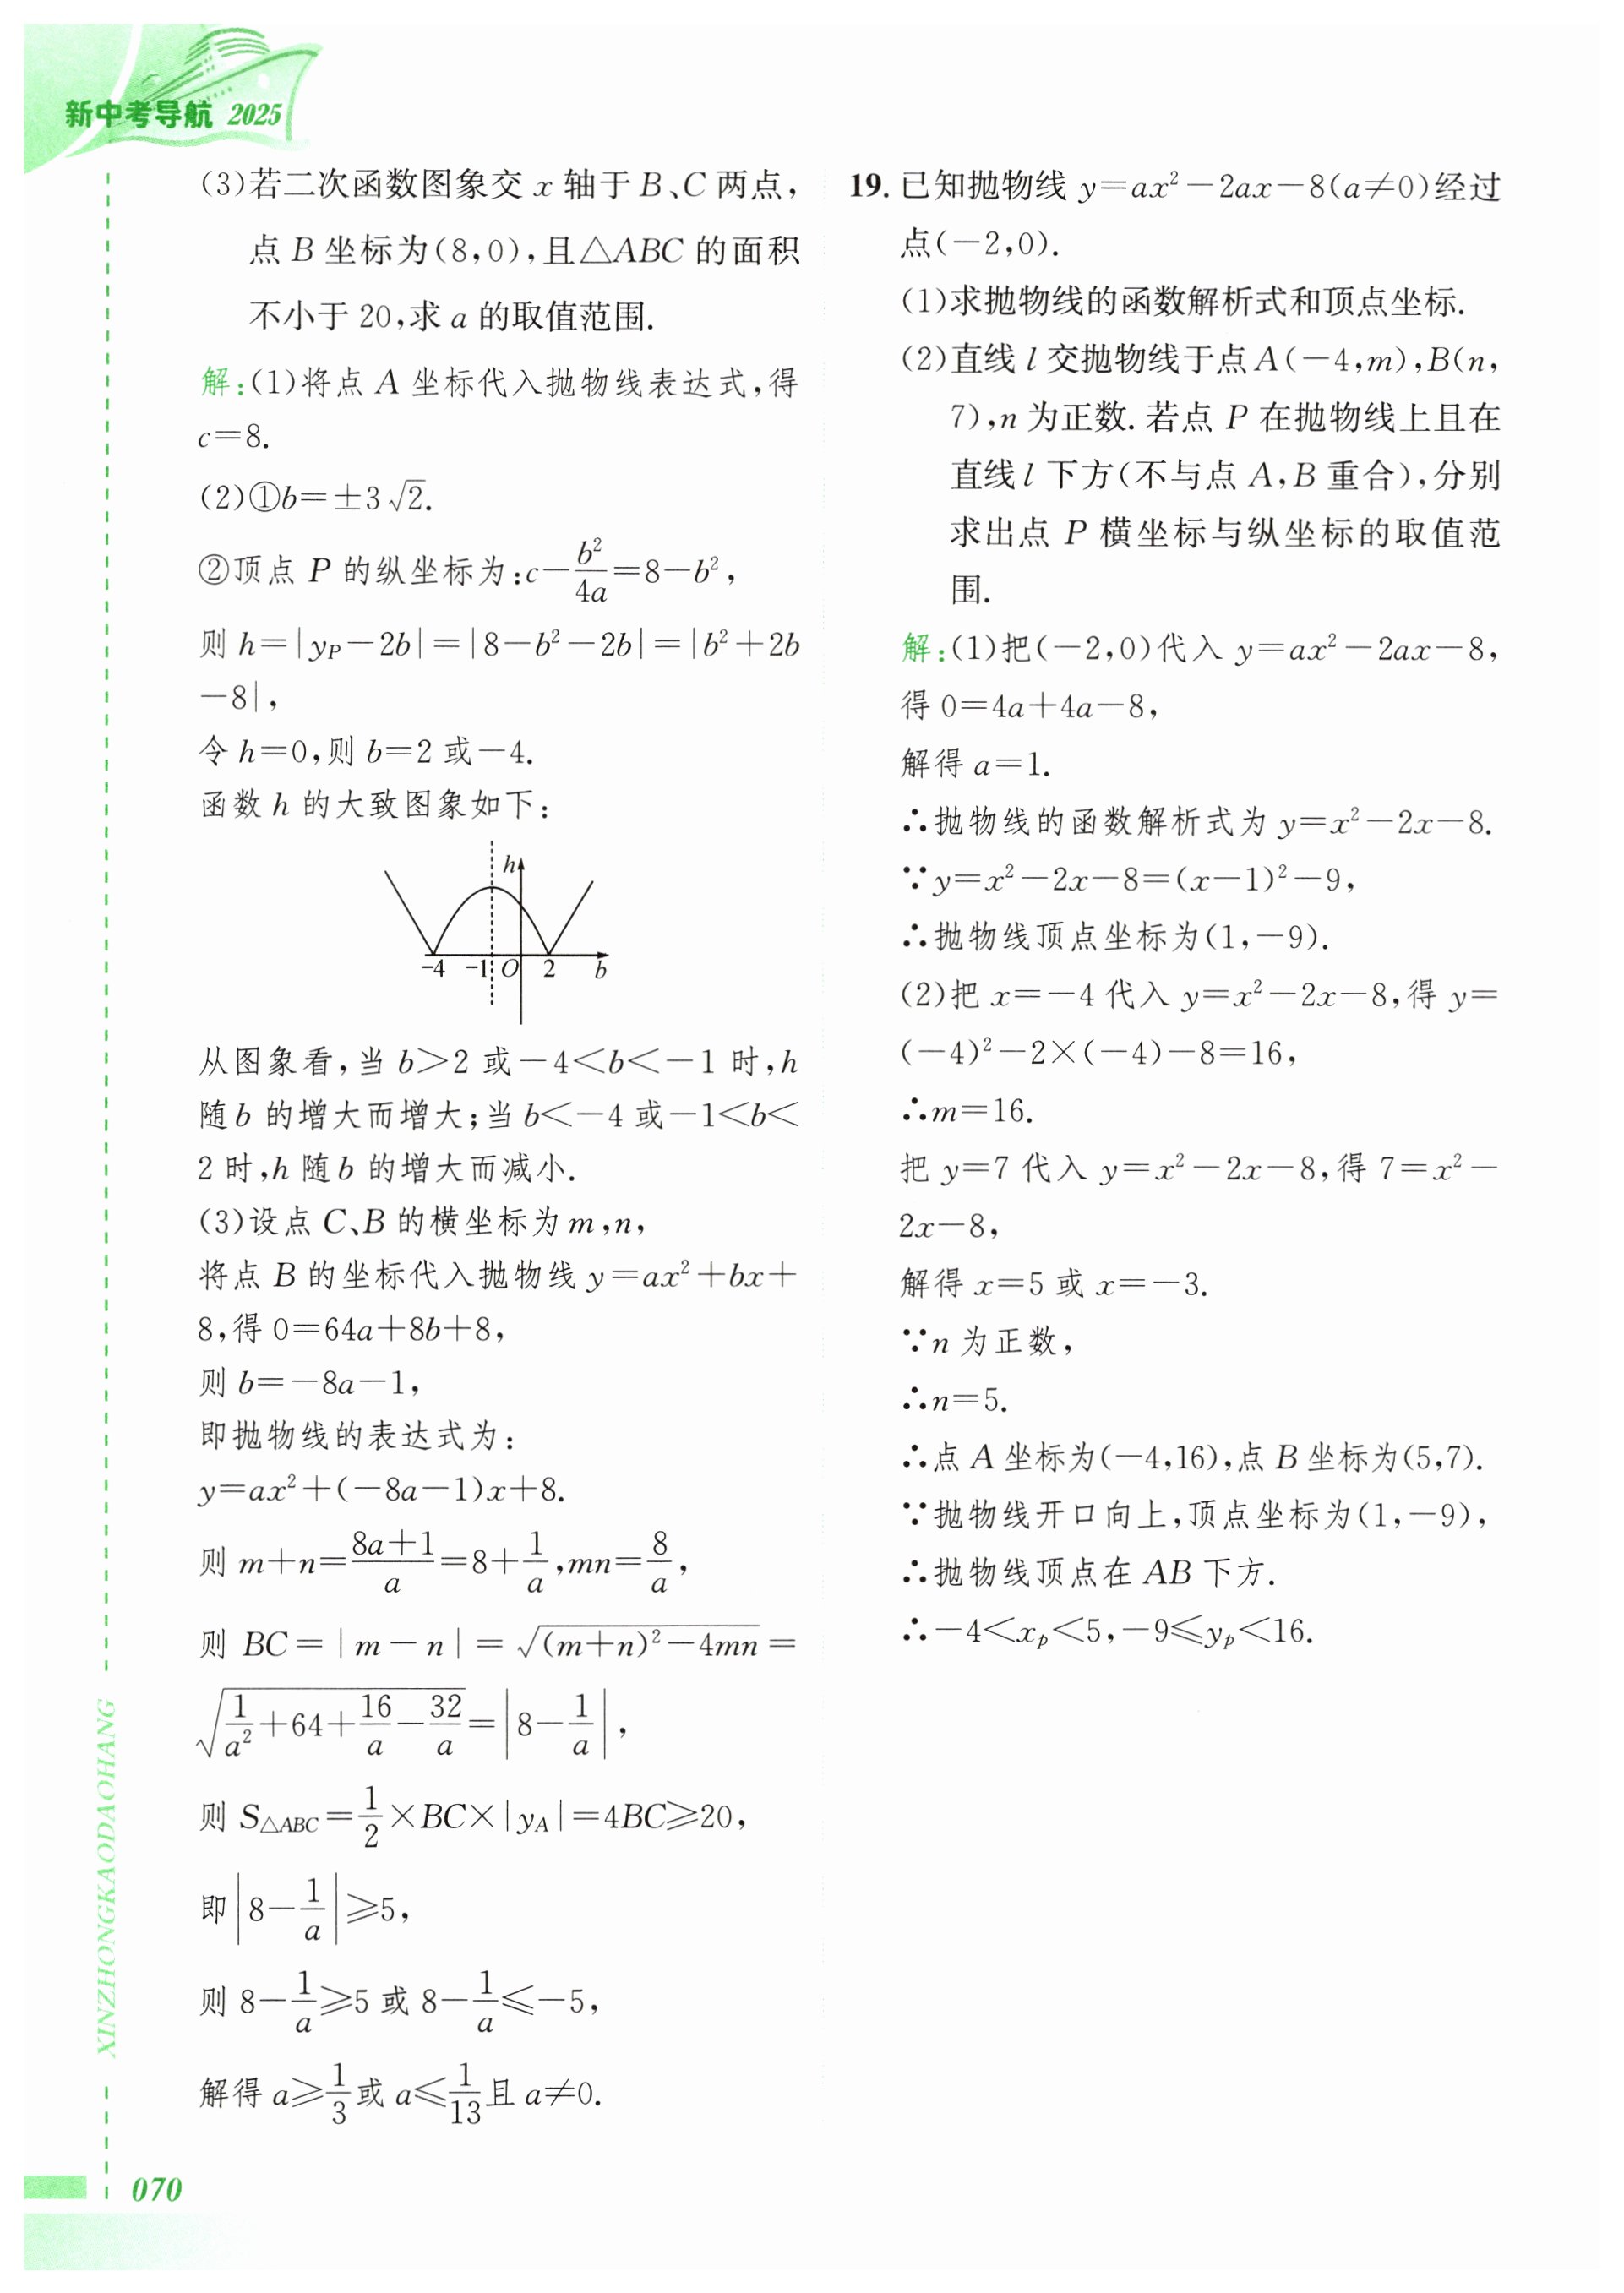 新中考导航 2025
(3)若二次函数图象交 x 轴于 B、C 两点,
点 B 坐标为(8,0),且△ABC 的面积
不小于 20,求 a 的取值范围.
解:(1)将点 A 坐标代入抛物线表达式,得
c=8.
(2)①b=±3√2.
②顶点 P 的纵坐标为:c-b²/4a=8-b²,
则 h=|y_P-2b|=|8-b²-2b|=|b²+2b
-8|,
令 h=0,则 b=2 或-4.
函数 h 的大致图象如下:
h
-4 -1 O 2 b
从图象看,当 b>2 或-4<b<-1 时,h
随 b 的增大而增大;当 b<-4 或-1<b<
2 时,h 随 b 的增大而减小.
(3)设点 C、B 的横坐标为 m,n,
将点 B 的坐标代入抛物线 y=ax²+bx+
8,得 0=64a+8b+8,
则 b=-8a-1,
即抛物线的表达式为:
y=ax²+(-8a-1)x+8.
则 m+n=(8a+1)/a=8+1/a,mn=8/a,
则 BC=|m-n|=√((m+n)²-4mn)=
√(1/a²+64+16/a-32/a)=|8-1/a|,
则 S△ABC=1/2×BC×|y_A|=4BC≥20,
即|8-1/a|≥5,
则 8-1/a≥5 或 8-1/a≤-5,
解得 a≥1/3 或 a≤1/13 且 a≠0.
19. 已知抛物线 y=ax²-2ax-8(a≠0)经过
点(-2,0).
(1)求抛物线的函数解析式和顶点坐标.
(2)直线 l 交抛物线于点 A(-4,m),B(n,
7),n 为正数. 若点 P 在抛物线上且在
直线 l 下方(不与点 A,B 重合),分别
求出点 P 横坐标与纵坐标的取值范
围.
解:(1)把(-2,0)代入 y=ax²-2ax-8,
得 0=4a+4a-8,
解得 a=1.
∴抛物线的函数解析式为 y=x²-2x-8.
∵y=x²-2x-8=(x-1)²-9,
∴抛物线顶点坐标为(1,-9).
(2)把 x=-4 代入 y=x²-2x-8,得 y=
(-4)²-2×(-4)-8=16,
∴m=16.
把 y=7 代入 y=x²-2x-8,得 7=x²-
2x-8,
解得 x=5 或 x=-3.
∵n 为正数,
∴n=5.
∴点 A 坐标为(-4,16),点 B 坐标为(5,7).
∵抛物线开口向上,顶点坐标为(1,-9),
∴抛物线顶点在 AB 下方.
∴-4<x_p<5,-9≤y_p<16.
XINZHONGKAODAOHANG
070